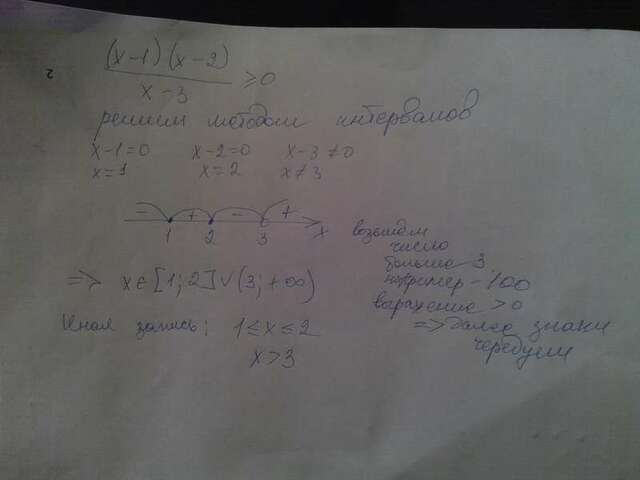 2
(x-1)(x-2)
x-3
≥0
решим методом интервалов
x-1=0 x-2=0 x-3≠0
x=1 x=2 x≠3
- + - +
1 2 3 x
возьмем
число
больше 3
например - 100
выражение > 0
=> далее знаки
чередуем
=> x∈[1;2]∨(3;+∞)
Иная запись: 1≤x≤2
x>3